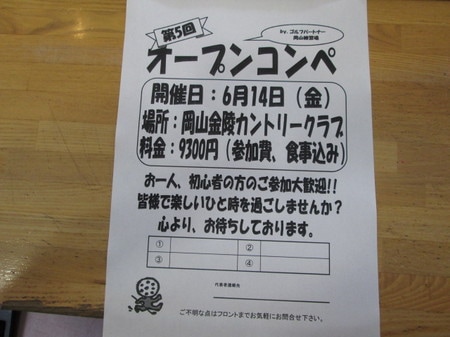 第5回
by. ゴルフパートナー
岡山練習場
オープンコンペ
開催日：6月14日（金）
場所：岡山金陵カントリークラブ
料金：9300円（参加費、食事込み）
お一人、初心者の方のご参加大歓迎!!
皆様で楽しいひと時を過ごしませんか？
心より、お待ちしております。
① ②
③ ④
代表者連絡先
ご不明な点はフロントまでお気軽にお問合せ下さい。